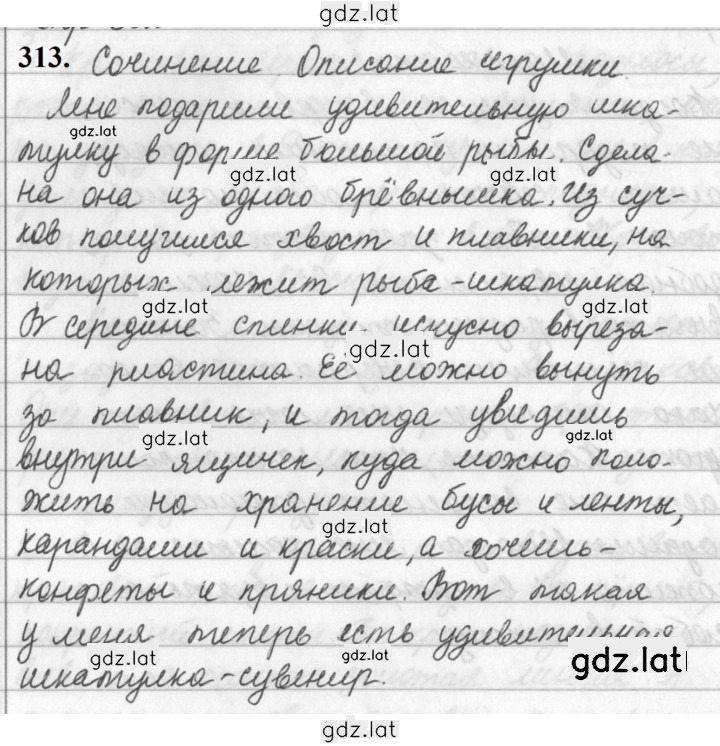 gdz.lat
313. Сочинение. Описание игрушки.
Мне подарили удивительную шка-
gdz.lat
тулку в форме большой рыбы. Сдела-
gdz.lat gdz.lat
на она из одного брёвнышка. Из суч-
ков получился хвост и плавники, на
которых лежит рыба-шкатулка.
gdz.lat gdz.lat
В середине спинки искусно выреза-
gdz.lat
на пластина. Её можно вынуть
за плавник, и тогда увидишь
gdz.lat gdz.lat
внутри ящичек, куда можно поло-
жить на хранение бусы и ленты,
gdz.lat gdz.lat
карандаши и краски, а хочешь-
конфеты и пряники. Вот такая
у меня теперь есть удивительная
gdz.lat gdz.lat gdz.lat
шкатулка-сувенир.
gdz.lat